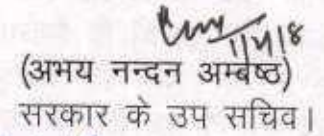 1/4/18
(अभय नन्दन अम्बष्ठ)
सरकार के उप सचिव।